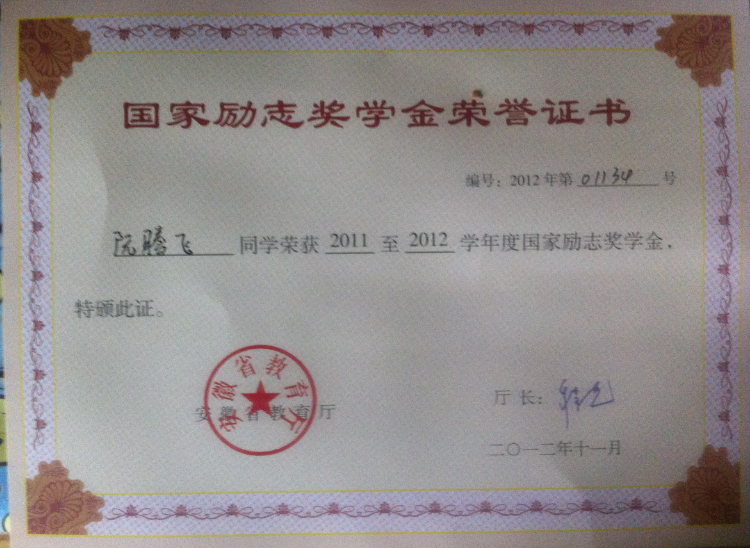 国家励志奖学金荣誉证书
编号：2012年第 01134 号
阮腾飞 同学荣获 2011 至 2012 学年度国家励志奖学金，
特颁此证。
安徽省教育厅
安徽省教育厅
厅 长：
二〇一二年十一月